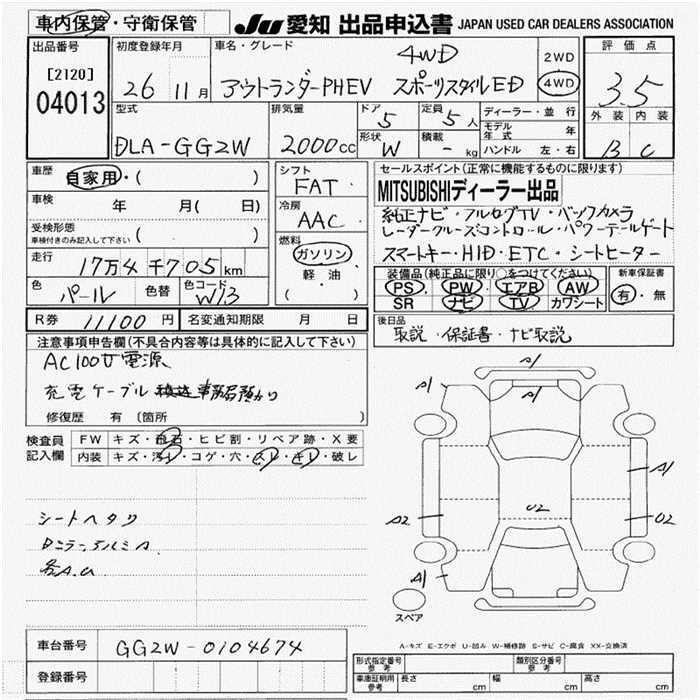 車内保管・守衛保管 JU 愛知 出品申込書 JAPAN USED CAR DEALERS ASSOCIATION
出品番号 初度登録年月 車名・グレード 評価点
[2120] 4WD 2WD
04013 26 11月 アウトランダーPHEV スポーツスタイルED 4WD 3.5
型式 排気量 ドア 定員 ディーラー・並行 外装 内装
DLA-GG2W 2000cc 5 5人 モデル年式 年 B C
形状 W 積載 - kg ハンドル 左・右
車歴 自家用・( ) シフト FAT セールスポイント(正常に機能するものに限ります)
MITSUBISHIディーラー出品
車検 年 月( 日) 冷房 AAC
純正ナビ・フルセグTV・バックカメラ
受検形態 車検付きのみ記入して下さい ( ) レーダークルーズコントロール・パワーテールゲート
燃料 ガソリン 軽・油 ( )
スマートキー・HID・ETC・シートヒーター
走行 17万4千705km
装備品(純正品に限り○をつけてください) 新車保証書
PS PW エアB AW 有・無
SR ナビ TV カワシート
色 パール 色替 色コード W13
R券 11100円 名変通知期限 月 日
後日品 取説・保証書・ナビ取説
注意事項申告欄(不具合内容等は具体的に記入して下さい)
AC100V電源
充電ケーブル 事務局預かり
修復歴 有 〔箇所
検査員記入欄 FW キズ・飛石・ヒビ割・リペア跡・X要
内装 キズ・汚レ・コゲ・穴・スレ・キレ・破レ
A1
A1
A1
A1
A2
U2
U2
シートヘタリ
A1
スペア
車台番号 GG2W-0104674
登録番号
A-キズ E-エクボ U-凹み W-補修跡 S-サビ C-腐食 XX-交換済
形式指定番号 参考 類別区分番号 参考
車庫証明用 参考 長さ cm 幅 cm 高さ cm